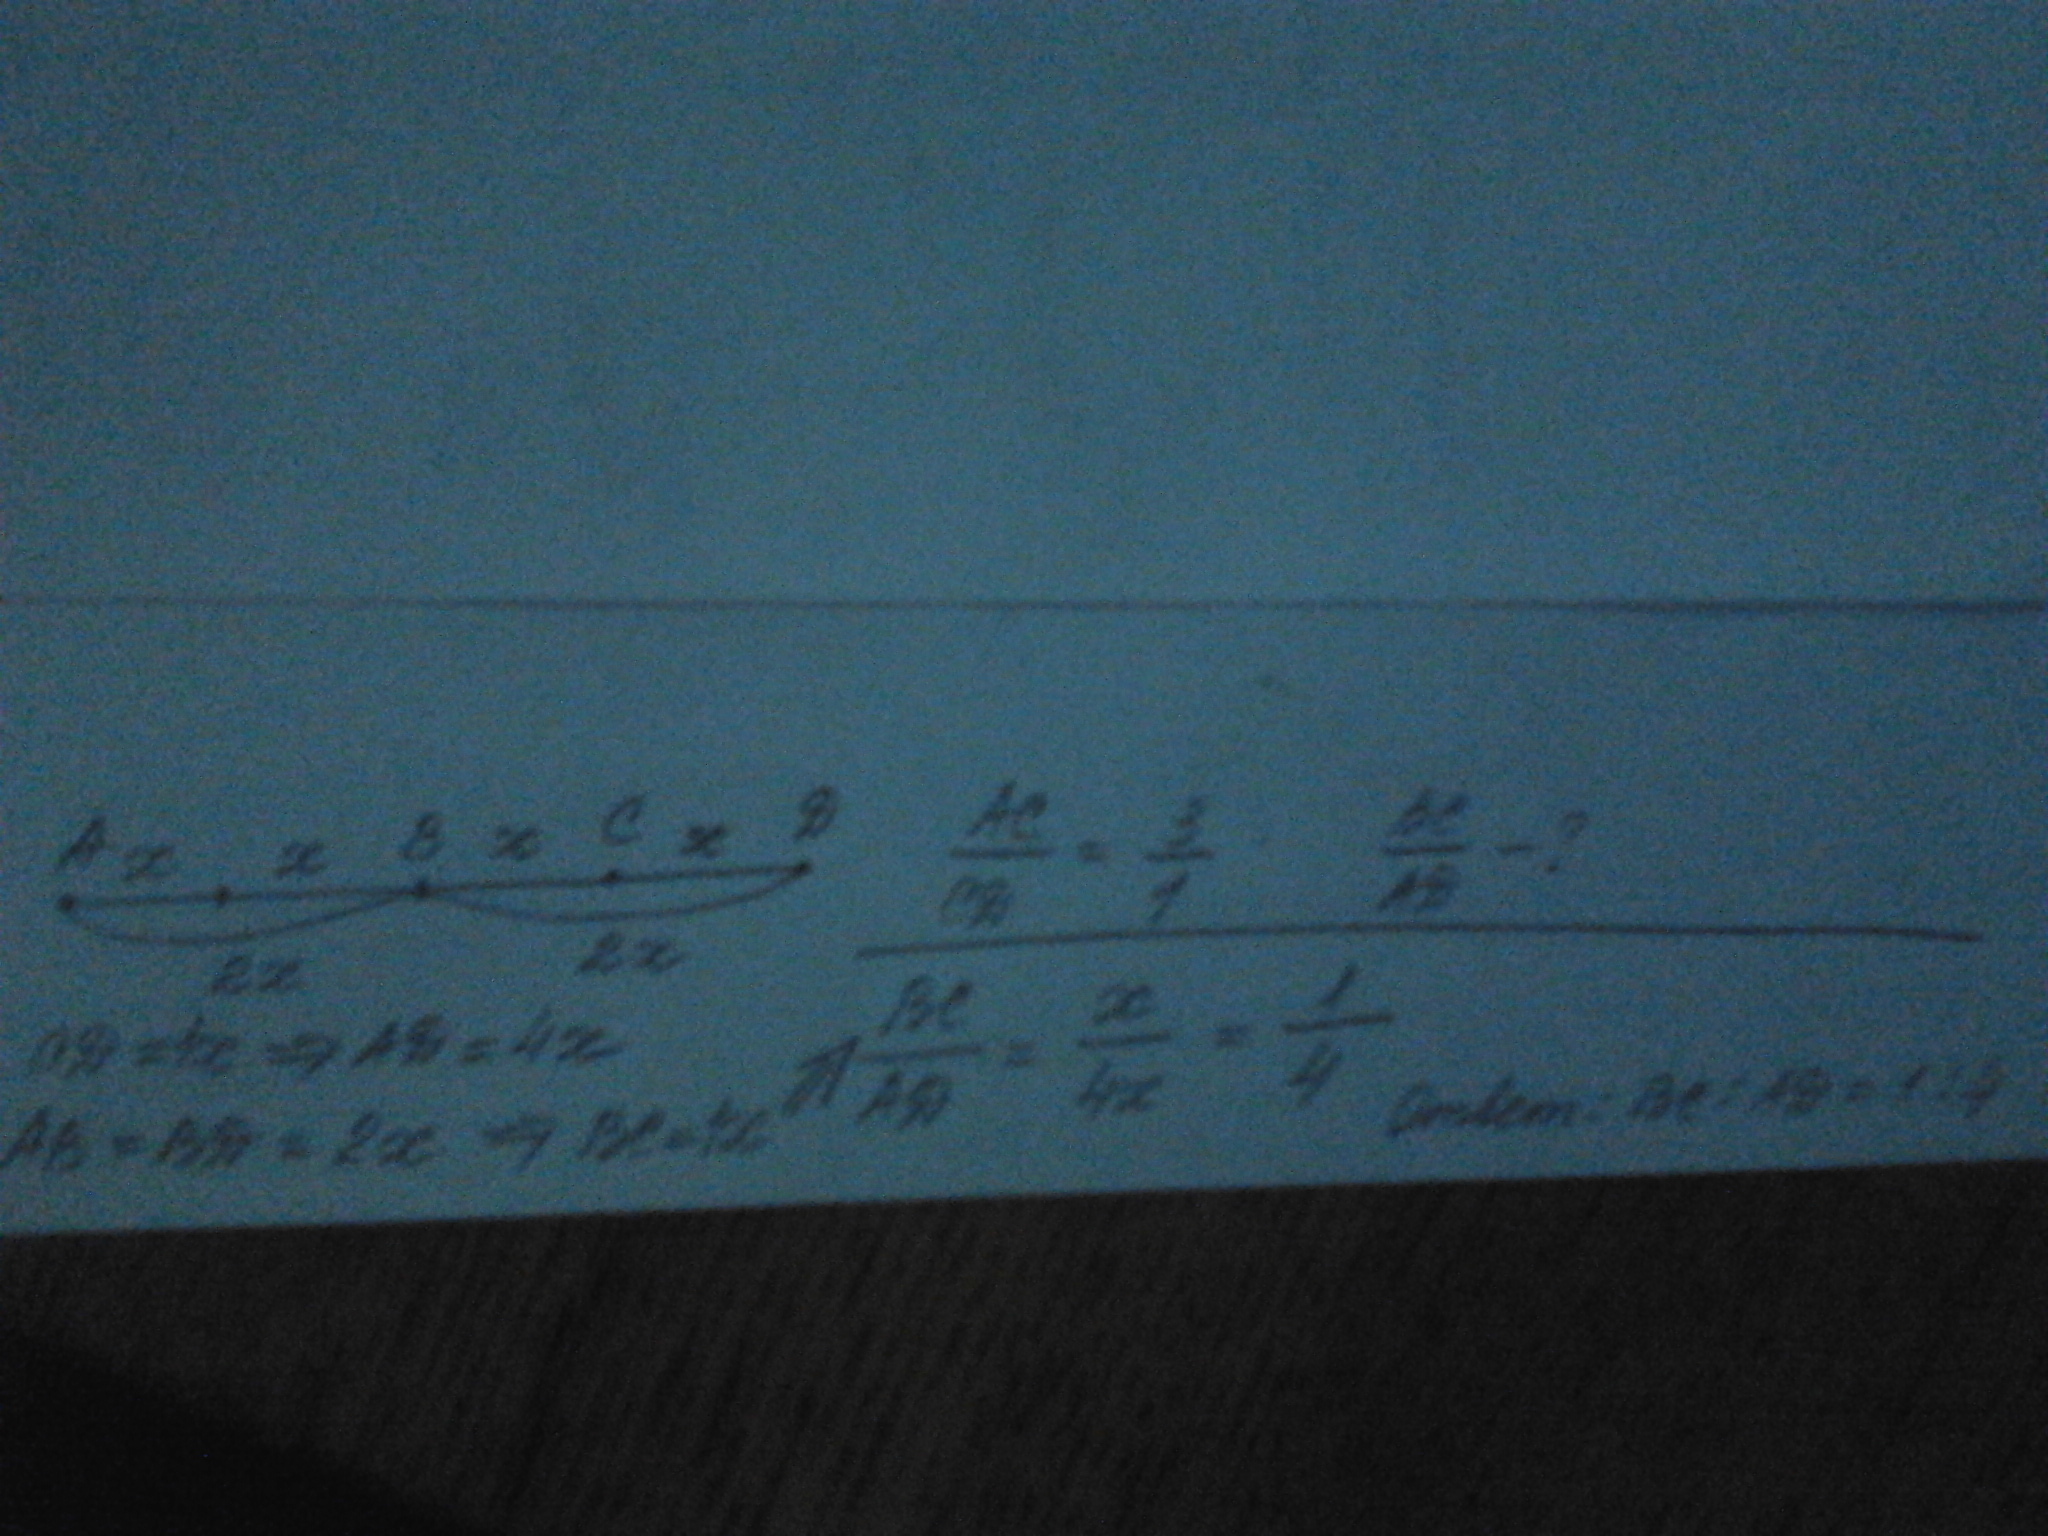 A x x B x C x D
2x 2x
AC/CD = 3/1 BC/AD - ?
CD = 1x ⇒ AD = 4x
AB = BD = 2x ⇒ BC = 1x
BC/AD = x/4x = 1/4
Ответ: BC : AD = 1 : 4